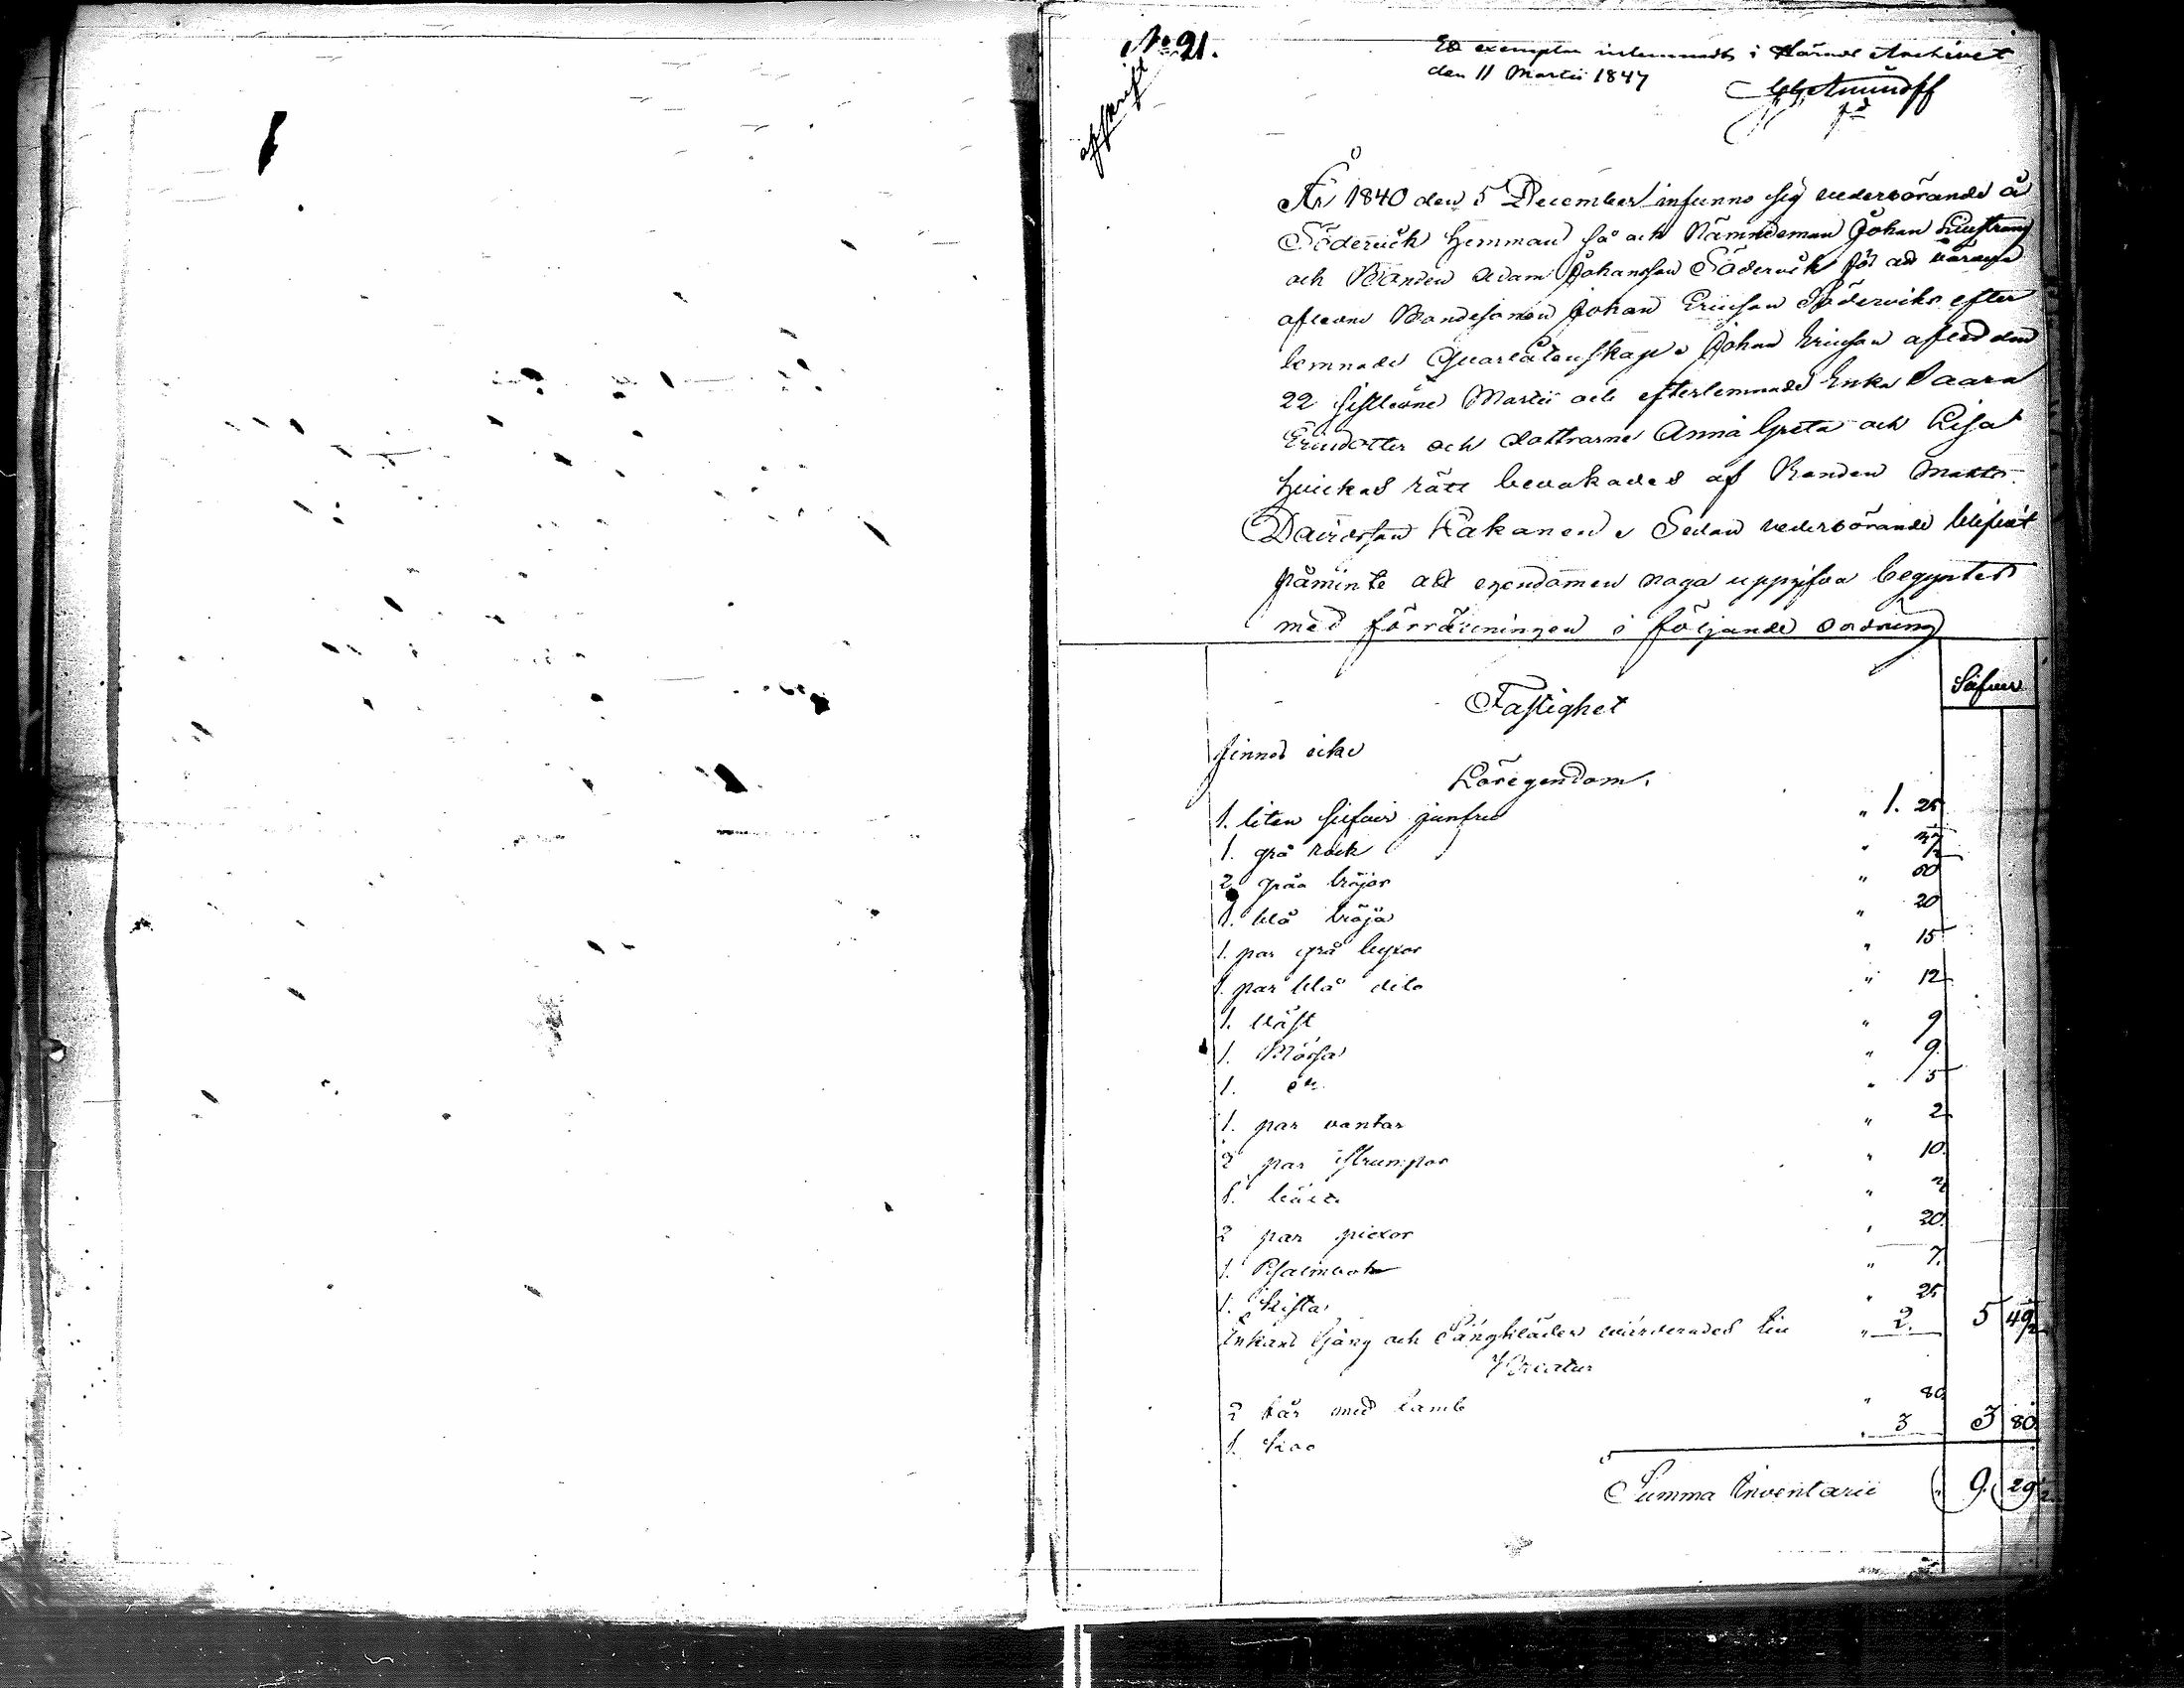 No 21.
afskrift
Ett exemplar inlemnadt i Härads Archivet
den 11 Martii 1847
År 1840 den 5 December infunno sig vederbörande å
Södervik hemman så ock Nämndeman Johan
och Bonden Adam Johansson Södervik för att värdera
afledne Bondesonen Johan Ericson Söderviks efter
lemnade Qvarlåtenskap. Johan Ericson afled den
22 sistledne Martii och efterlemnade Enka Saara
Ericsdotter och dottrarne Anna Greta och Lisa
hvickas rätt bevakades af Bonden Matts
Davidsson Kakanen. Sedan vederbörande blifvit
påminte att egendomen noga uppgifva begyntes
med förräkningen i följande ordning
Silfver
Fastighet
finnes icke
Lösegendom.
1. liten silfver " 1. 25
1. grå rock " 37/2
2 gråa tröjor " 60
1. blå tröja " 20
1. par grå byxor " 15
1. par blå dito " 12
1. väst " 9
1. Mössa " 9.
1. do " 5
1. par vantar " 2
2 par strumpor " 10.
1. bälte "
2 par piexor " 20.
1. Psalmbok " 7.
1. kista " 25
Enkans Säng och Sängkläder värderades till " 2. 5 49/2
Kreatur
2 får med lamb " 80
1. koo " 3 3 80.
Summa Inventarii " 9. 29/2